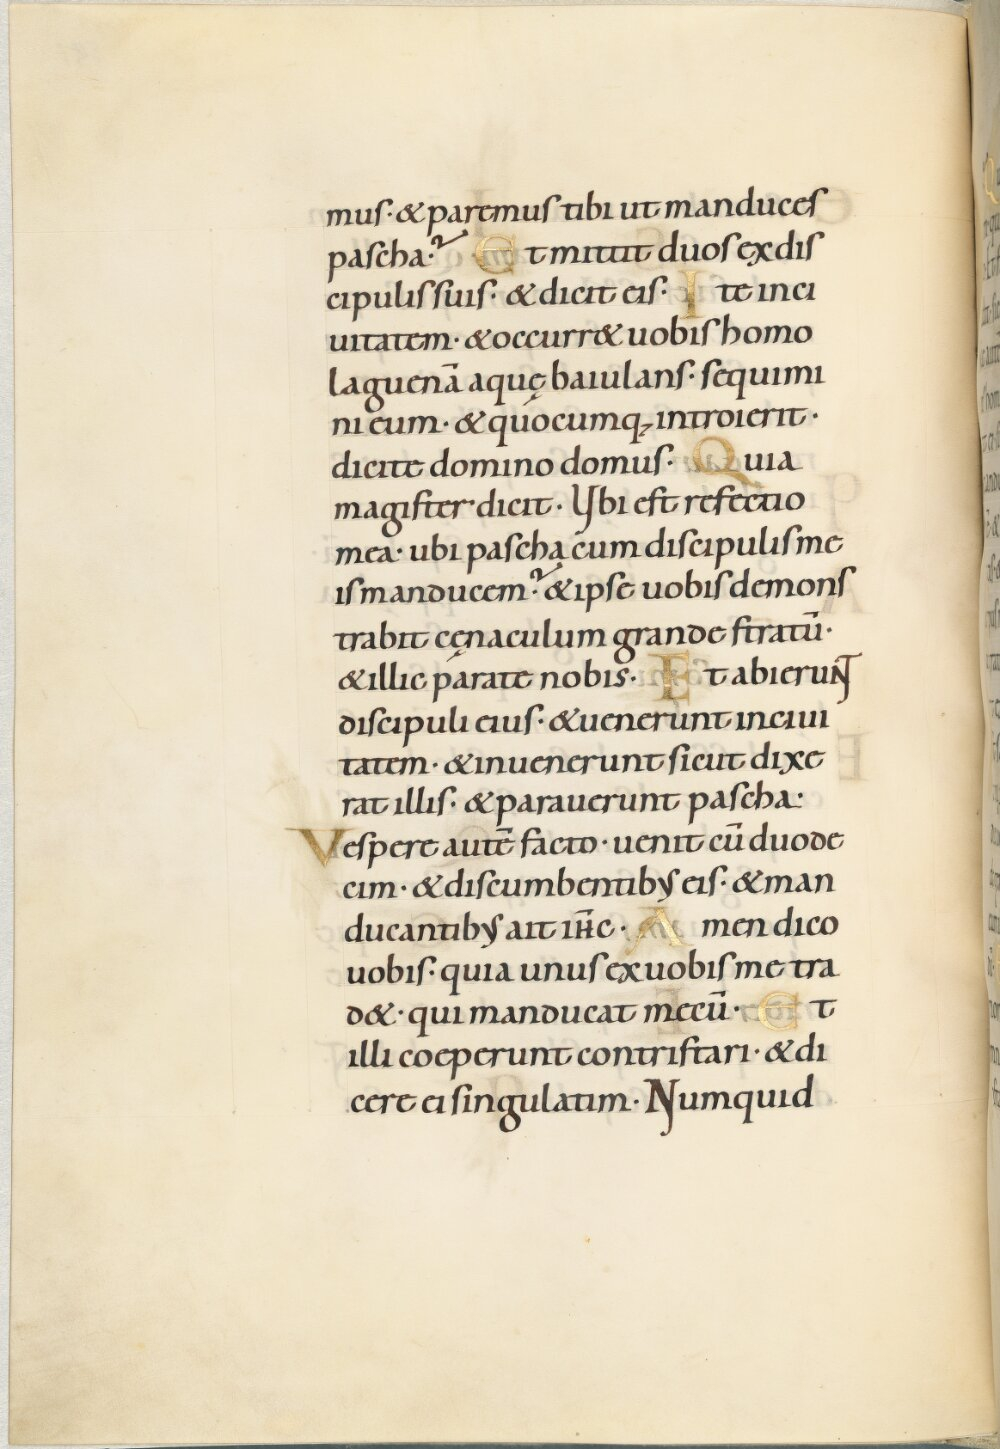 mus· & paremus tibi ut manduces
pascha·? Et mittit duos ex dis
cipulis suis· & dicit eis· Ite in ci
uitatem· & occurr& uobis homo
laguenā aquę baiulans· sequimi
ni eum· & quocumq; introierit·
dicite domino domus· Quia
magister dicit· Vbi est refectio
mea· ubi pascha cum discipulis me
is manducem? & ipse uobis demons
trabit cęnaculum grande stratū·
& illic parate nobis· Et abierunt
discipuli eius· & uenerunt in ciui
tatem· & inuenerunt sicut dixe
rat illis· & parauerunt pascha·
Vespere autē facto· uenit cū duode
cim· & discumbentibus eis· & man
ducantibus ait ihc· Amen dico
uobis· quia unus ex uobis me tra
d&· qui manducat mecū· Et
illi coeperunt contristari· & di
cere ei singulatim· Numquid